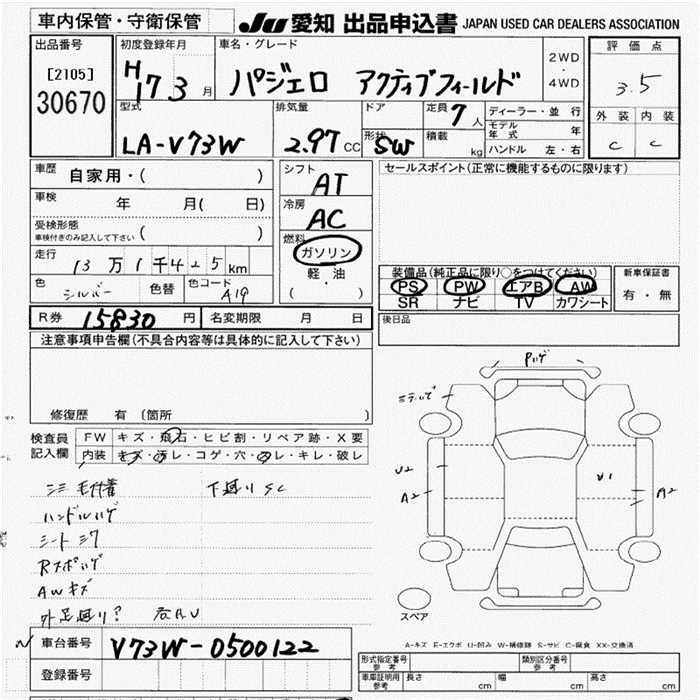 車内保管・守衛保管
JU 愛知 出品申込書 JAPAN USED CAR DEALERS ASSOCIATION
出品番号
[2105]
30670
初度登録年月
H17 3 月
車名・グレード
パジェロ アクティブフィールド
2WD
・
4WD
評価点
3.5
外装 内装
C C
型式
LA-V73W
排気量
2.97 CC
ドア
形状
SW
定員 7 人
積載 kg
ディーラー・並行
モデル年式 年
ハンドル 左・右
車歴
自家用・( )
車検
年 月( 日)
受検形態
車検付きのみ記入して下さい ( )
走行
13万1千425km
色
シルバー
色替
色コード
A19
シフト
AT
冷房
AC
燃料
ガソリン
軽・油
( )
セールスポイント(正常に機能するものに限ります)
装備品(純正品に限り○をつけてください)
PS PW エアB AW
SR ナビ TV カワシート
新車保証書
有・無
R券 15830 円
名変期限 月 日
後日品
注意事項申告欄(不具合内容等は具体的に記入して下さい)
修復歴 有(箇所 )
検査員
記入欄
FW キズ・飛石・ヒビ割・リペア跡・X要
内装 キズ・汚レ・コゲ・穴・スレ・キレ・破レ
下廻りSC
ハンドルハゲ
シート
AWキズ
外足廻り?
U2
A2
U1
A2
スペア
A-キズ E-エクボ U-凹み W-補修跡 S-サビ C-腐食 XX-交換済
車台番号 V73W-0500122
登録番号
形式指定番号
参考
類別区分番号
参考
車庫証明用
参考
長さ cm 幅 cm 高さ cm